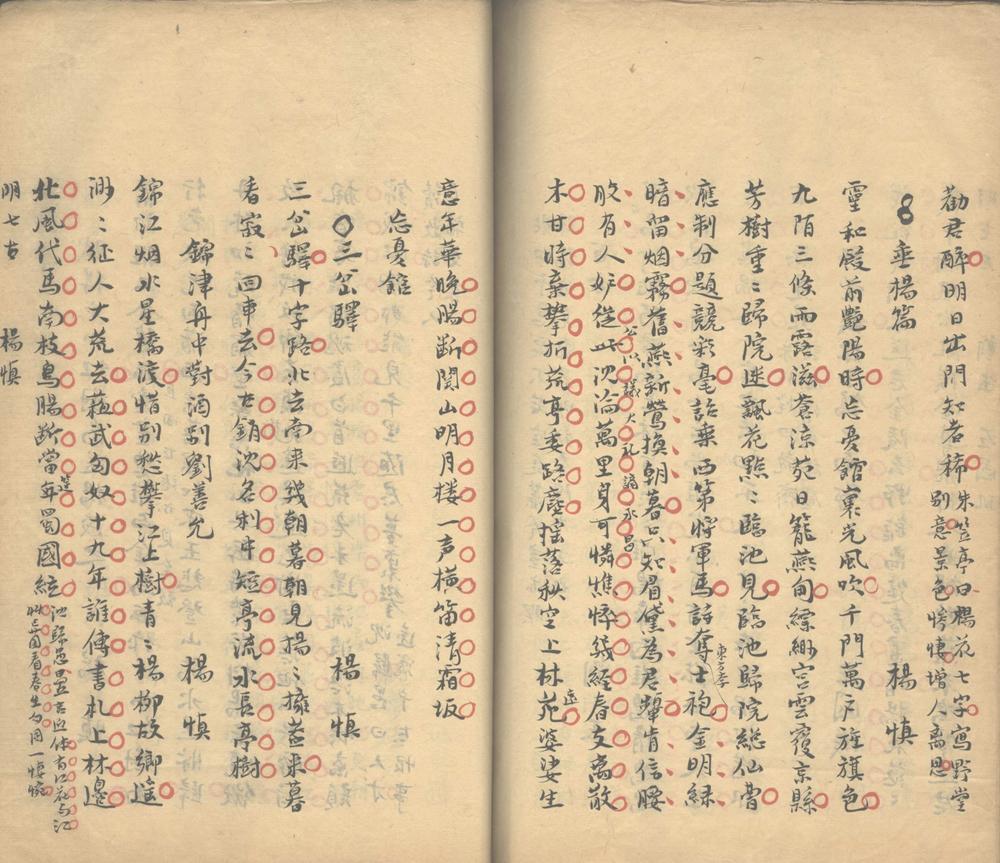 勸君醉明日出門知者稀
朱笠亭曰楊花七字寫野堂
別意景色慘悽增人離思
垂楊篇 楊慎
靈和殿前艷陽時忘憂館裏光風吹千門萬戶旌旗色
九陌三條雨露滋蒼涼苑日籠燕甸縹緲宮雲覆京縣
芳樹重〻歸院迷飄花點〻臨池見臨池歸院總仙曹
應制分題競彩毫詔乘西第將軍馬詩奪
東方虬
士袍金明綠
暗留烟霧舊燕新鶯換朝暮只知眉黛為君顰肯信腰
公以議大礼謫永昌
肢有人妒從此沉淪萬里身可憐憔悴幾經春支離散
木甘時棄攀折荒亭委路塵搖落秋空上林苑
遠
婆娑生
意年華晚腸斷關山明月楼一声橫笛清霜坂
忘憂館
三岔驛 楊慎
三岔驛十字路北去南来幾朝暮朝見揚〻擁蓋来暮
看寂〻回車去今古銷沈名利中短亭流水長亭樹
錦津舟中對酒別劉善充 楊慎
錦江烟水星橋渡惜別愁攀江上樹青〻楊柳故鄉遙
渺〻征人大荒去蘇武匈奴十九年誰傳書札上林邊
北風代馬南枝鳥腸斷當年蜀國絃
沈歸愚
明七古 楊慎